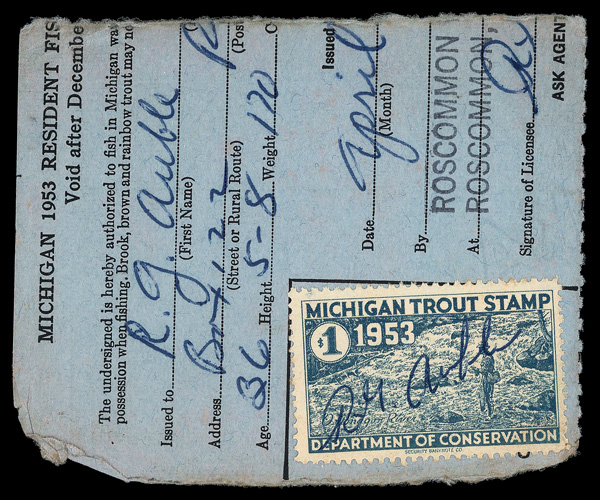 MICHIGAN 1953 RESIDENT FIS
Void after Decembe
The undersigned is hereby authorized to fish in Michigan wa
possession when fishing. Brook, brown and rainbow trout may no
Issued to R. G. Auble
(First Name)
Address Box 122 R
(Street or Rural Route) (Pos
Age 36 Height 5-8 Weight 170 C
Issued
Date April
(Month)
By ROSCOMMON
At ROSCOMMON,
Signature of Licensee
ASK AGENT
MICHIGAN TROUT STAMP
$1 1953
R G Auble
DEPARTMENT OF CONSERVATION
SECURITY BANKNOTE CO.